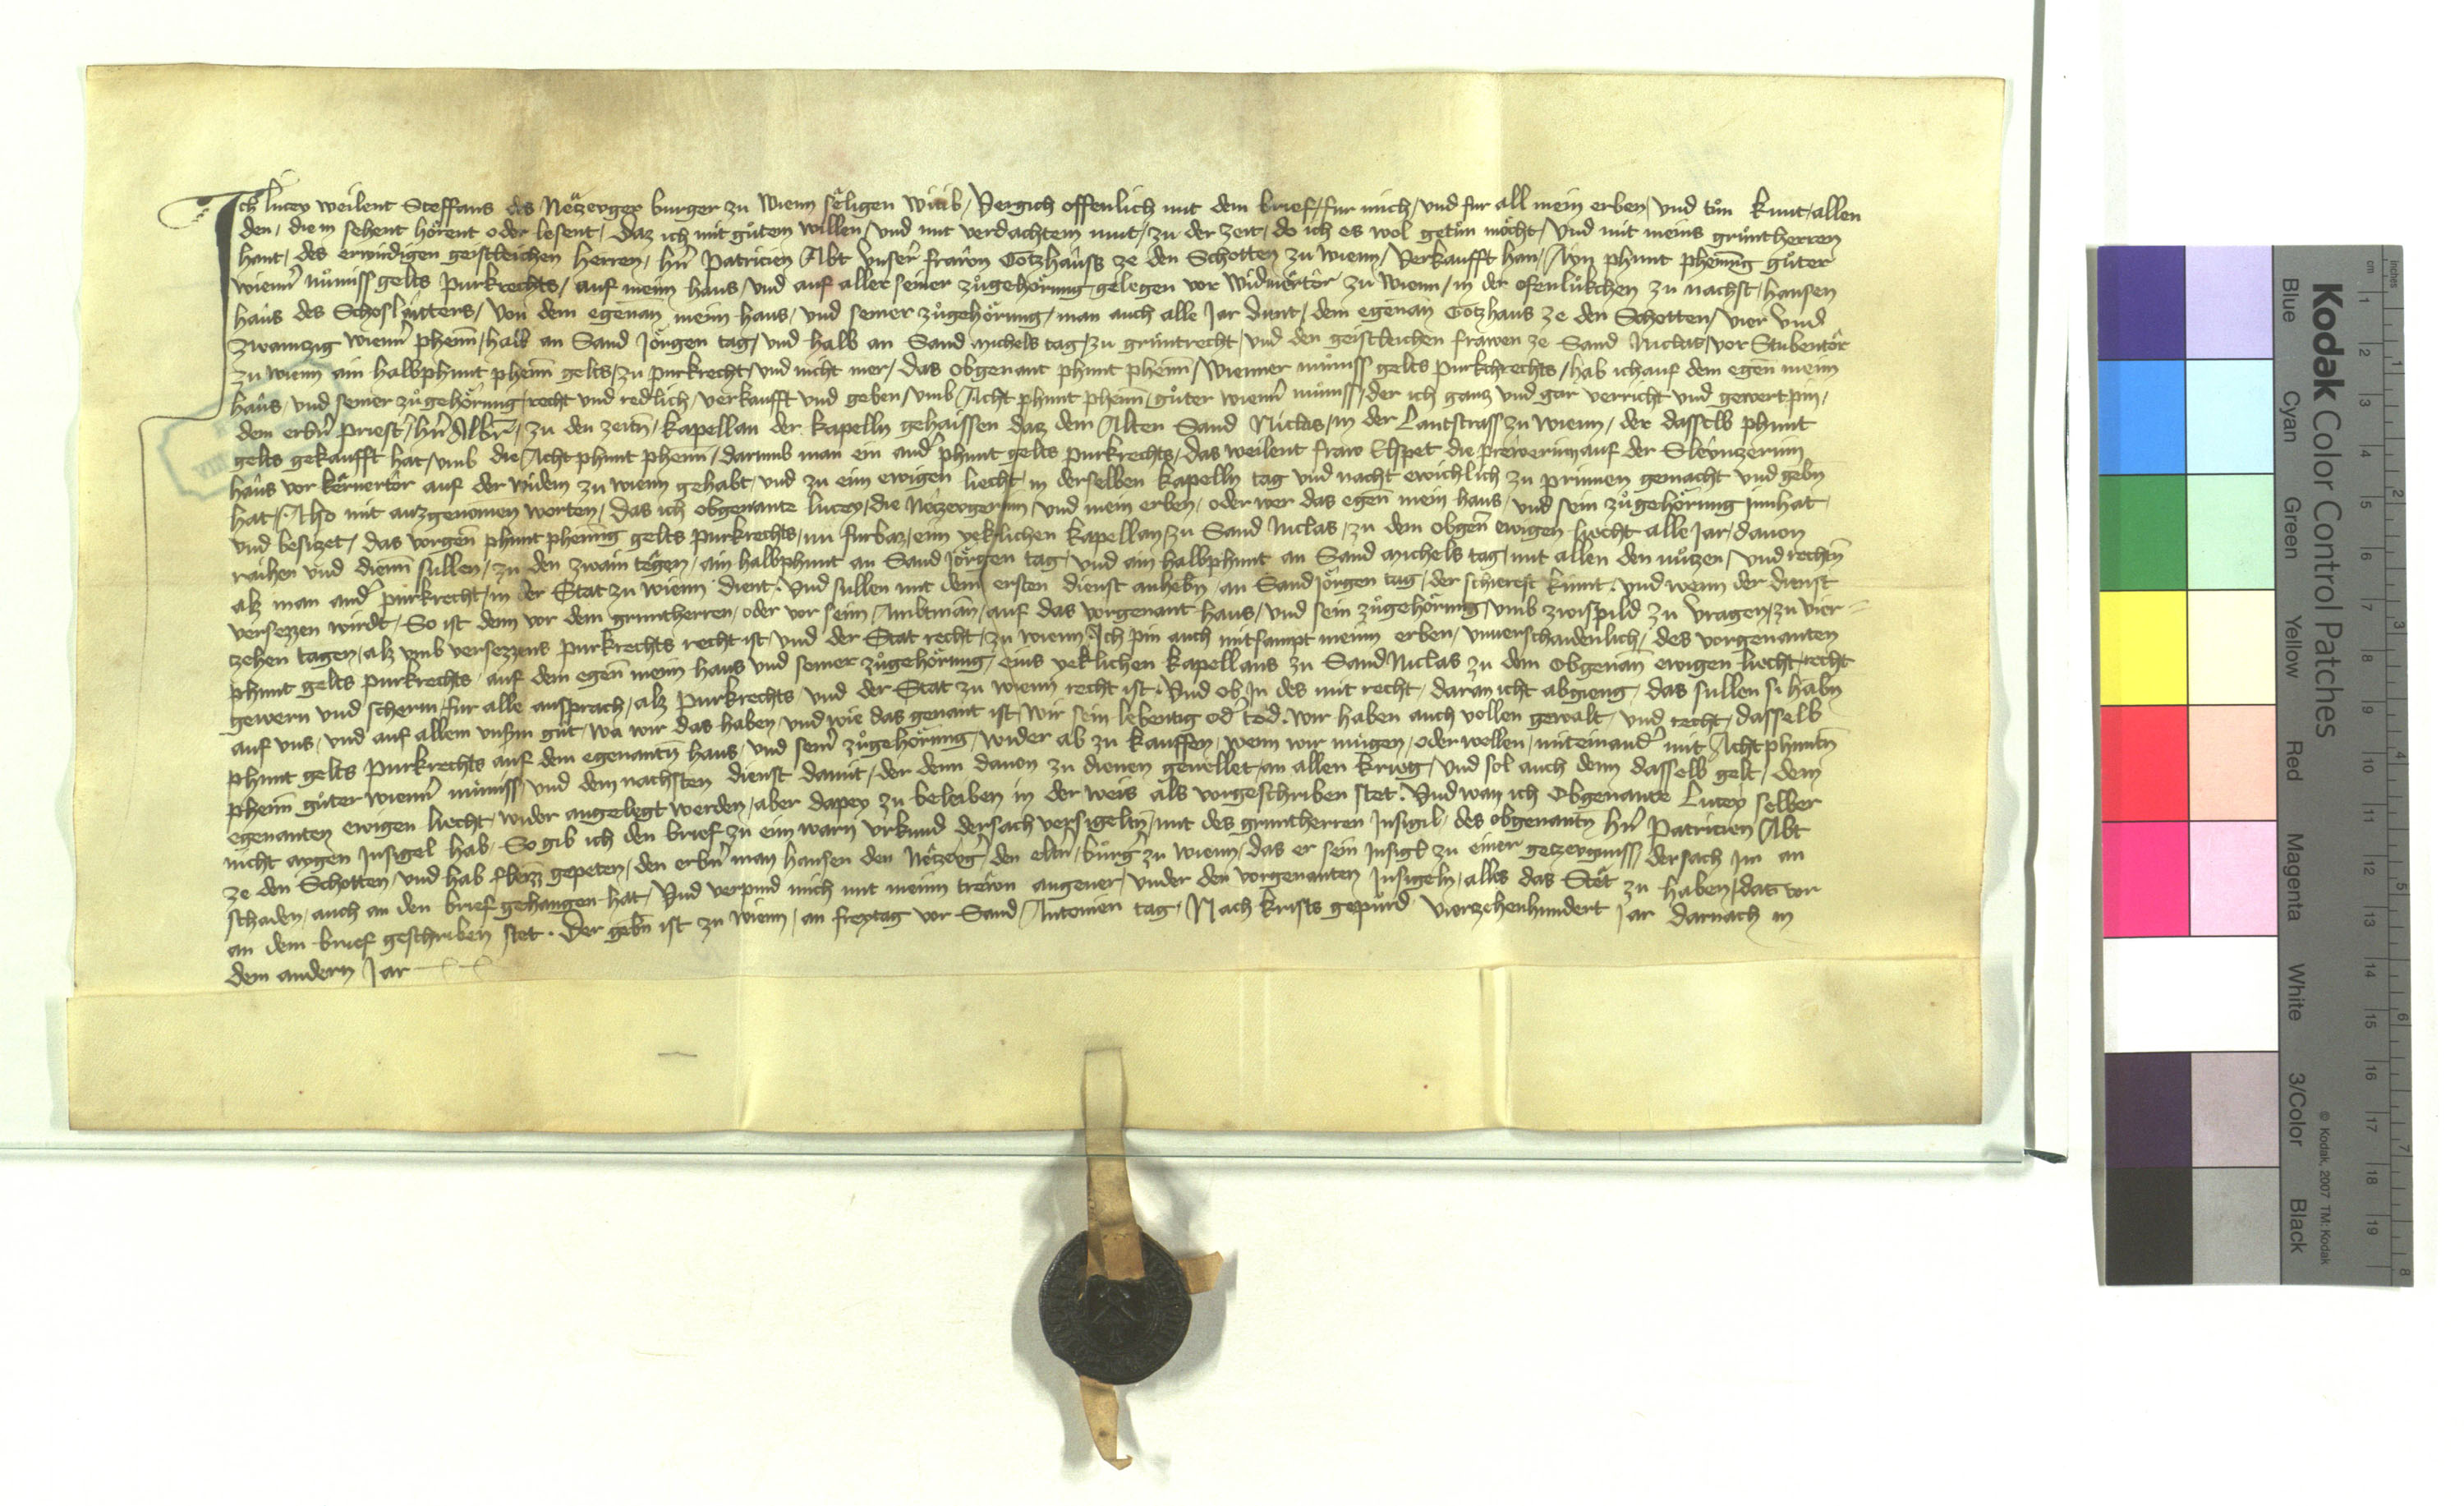 Ich lucey weilent Steffans des Netzenger burger zu Wienn seligen witib / Vergich offenlich mit dem brief / fur mich / und fur all mein erben / und tun kunt / allen
den / die in sehent horent oder lesent / Daz ich mit gutem willen / und mit verdachtem mut / zu der zeit / do ich es wol getun mocht / und mit meins gruntherren
hant / des erwirdigen geistleichen herren / hern Patricien Abt Unser frawn Gotzhauss ze den Schotten zu Wienn / Verkaufft han / Ayn phunt phening guter
wienner muniss gelts Purkrechts / auf meim haus / und auf aller seiner zugehorung gelegen vor Widmertor zu Wienn / in der ofenlukchen zu nachst / hansen
haus des Schoslutters / Von dem egenan meim haus / und seiner zugehorung / man auch alle Jar dint / dem egenan Gotzhaus ze den Schotten / Vier und
zwainzig wienner phenn / halb an Sand Jorgen tag / und halb an Sand Michels tag / zu gruntrecht / und den geistleichen frawen ze Sand Niclas / vor Stubentor
zu Wienn ain halbphunt phenn gelts / zu purkrecht / und nicht mer / Das obgenant phunt phenn / Wienner muniss gelts Purkchrechts / hab ich auf dem egen meim
haus / und seiner zugehorung / recht und redlich / verkaufft und geben / umb Acht phunt phenn / guter wienner muniss / der ich ganz und gar verricht und gewert pin /
dem erbern priester / hern Albr / zu den zeiten / kapellan der kapelln gehaissen daz dem Alten Sand Niclas / in der Lantstrass zu Wienn / der dasselb phunt
gelts gekaufft hat / umb die Acht phunt phenn / darumb man ein ander phunt gelts purkrechts / das weilent fraw Elspet die prewerinn auf der Slewnzerinn
haus vor kernertor auf der widem zu Wienn gehabt / und zu eim ewigen liecht / in derselben kapelln tag und nacht ewichlich zu prinnen gemacht und gebn
hat / Also mit auzgenomen worten / Das ich obgenante lucey / die Netzengerinn / und mein erben / oder wer das egen mein haus / und sein zugehorung innhat /
und besizet / das vorgen phunt phening gelts purkrechts / nu furbaz / eim yeklichen kapellan / zu Sand Niclas / zu dem obgen ewigen liecht alle Jar / dauon
raihen und dienn sullen / zu den zwain tegen / ain halbphunt an Sand Jorgen tag / und ain halbphunt an Sand Michels tag / mit allen den nuzen / und rechten
alz man ander purkrecht / in der Stat zu Wienn dient / Und sullen mit dem ersten dienst anhebn / an Sand Jorgen tag / der schierest kumt / und wenn der dienst
versezzen wirdt / So ist denn vor dem gruntherren / oder vor seim Ambtman / auf das vorgenant haus / und sein zugehorung / umb zwispild zu vragen / zu vier-
zehen tagen / alz umb versezzens purkrechts recht ist / und der Stat recht / zu Wienn / Ich pin auch mitsampt meinn erben / unuerschaidenlich / des vorgenanten
phunt gelts purkrechts auf dem egen meim haus und seiner zugehorung / eins yeklichen kapellans zu Sand Niclas zu dem obgenan ewigen liecht / recht
gewern und scherm / fur alle ansprach / alz purkrechts und der Stat zu Wienn recht ist / Und ob In des mit recht / daran icht abgieng / das sullen si habn
auf uns / und auf allem unserm gut / wa wir das haben / und wie das genant ist / wir sein lebentig oder tod / wir haben auch vollen gewalt / und recht / dasselb
phunt gelts Purkrechts auf dem egenanten haus / und seiner zugehorung / wider ab zu kauffen / wenn wir mugen / oder wellen / miteinander mit Acht phunten
phenn guter wienner muniss und dem nachsten dienst damit / der denn dauon zu dienen geuellet / an allen krieg / und sol auch denn dasselb gelt / dem
egenanten ewigen liecht / wider angelegt werden / aber dapey zu beleiben in der weis als vorgeschriben stet / Und wan ich Obgenante Lucey selber
nicht aygen Insigel hab / So gib ich den brief zu eim warn urkund der sach versigelten / mit des gruntherren Insigil / des obgenanten hern Patricien Abt
ze den Schotten / und hab fleizz gepeten / den erbern man hansen den Netzenger den eltern / burger zu Wienn / das er sein Insigel zu einer gezeugnuss / der sach im an
schaden / auch an den brief gehangen hat / Und verpind mich mit meinn trewn angeuer / under den vorgenanten Insigeln / alles das Stet zu haben / dat vor
an dem brief geschriben stet / Der gebn ist zu Wienn / an freytag vor Sand Antonien tag / Nach krists gepurd Vierzehenhundert Jar darnach in
dem andern Jar
Kodak Color Control Patches
Blue Cyan Green Yellow Red Magenta White 3/Color Black
© Kodak, 2007 TM: Kodak
cm 1 2 3 4 5 6 7 8 9 10 11 12 13 14 15 16 17 18 19
inches 1 2 3 4 5 6 7 8